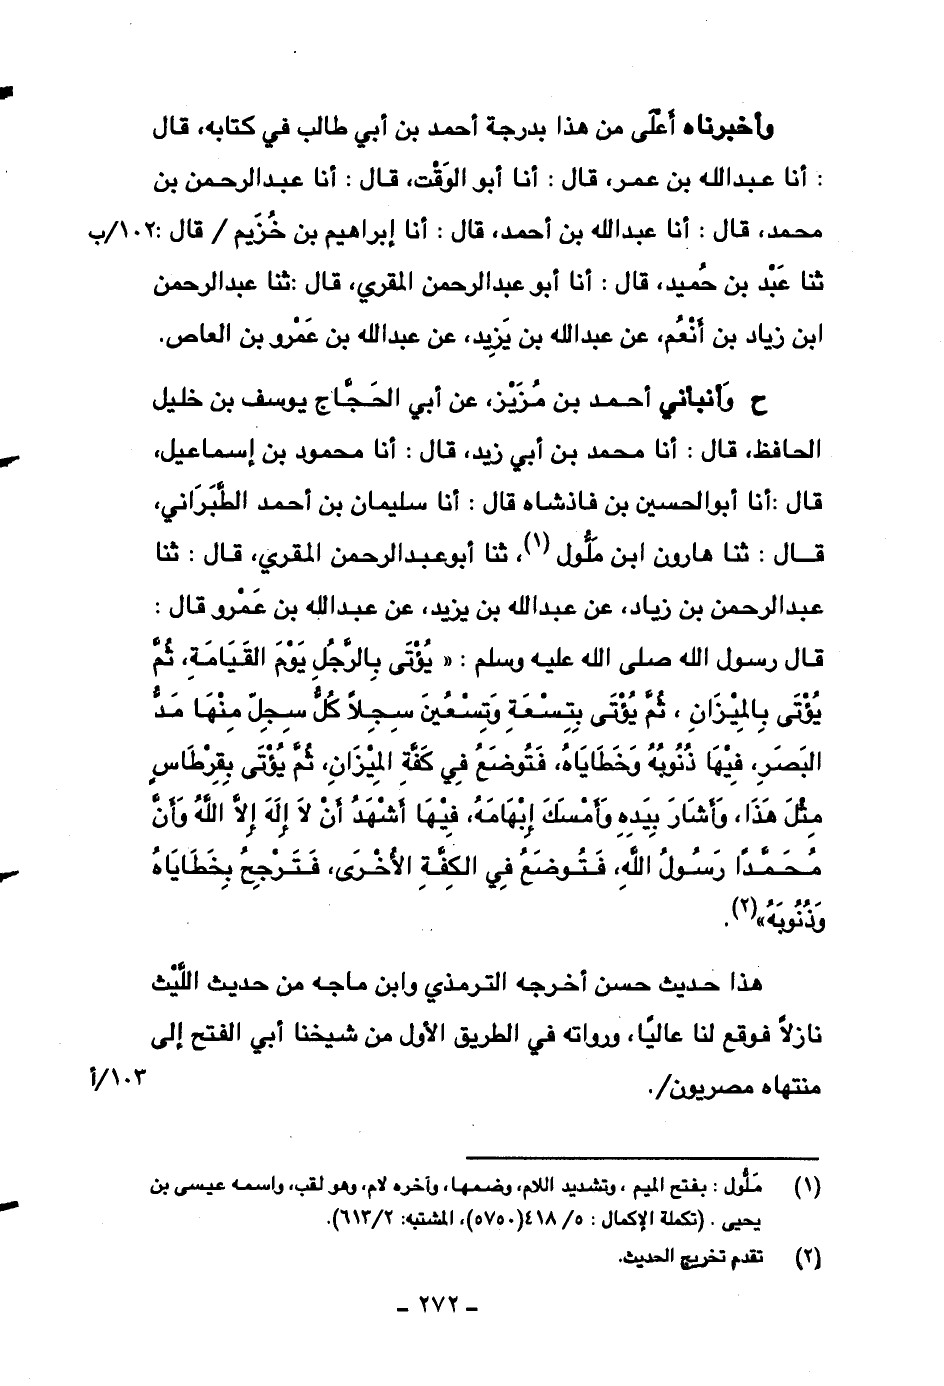 وأخبرناه أعلى من هذا بدرجة أحمد بن أبي طالب في كتابه، قال
: أنا عبدالله بن عمر، قال : أنا أبو الوَقْت، قال : أنا عبدالرحمن بن
محمد، قال : أنا عبدالله بن أحمد، قال : أنا إبراهيم بن خُزَيم / قال : ١٠٢/ب
ثنا عَبْد بن حُميد، قال : أنا أبو عبدالرحمن المقري، قال :ثنا عبدالرحمن
ابن زياد بن أَنْعُم، عن عبدالله بن يَزِيد، عن عبدالله بن عَمْرو بن العاص.
ح وَأنبأني أحمد بن مُزَيْز، عن أبي الحَجَّاج يوسف بن خليل
الحافظ، قال : أنا محمد بن أبي زيد، قال : أنا محمود بن إسماعيل،
قال :أنا أبوالحسين بن فاذشاه قال : أنا سليمان بن أحمد الطَّبَرَاني،
قال : ثنا هارون ابن مَلُّول (١)، ثنا أبوعبدالرحمن المقري، قال : ثنا
عبدالرحمن بن زياد، عن عبدالله بن يزيد، عن عبدالله بن عَمْرو قال :
قال رسول الله صلى الله عليه وسلم : « يُؤْتَى بِالرَّجُلِ يَوْمَ القَيَامَةِ، ثُمَّ
يُؤْتَى بِالمِيْزَانِ ، ثُمَّ يُؤْتَى بِتِسْعَةِ وَتِسْعُينَ سِجِلاً كُلُّ سِجِلّ مِنْهَا مَدُّ
البَصَرِ، فِيْهَا ذُنُوبُهُ وَخَطَايَاهُ، فَتُوضَعُ فِي كَفَّةِ المِيْزَانِ، ثُمَّ يُؤْتَى بِقِرْطَاسٍ
مِثْلَ هَذَا، وَأَشَارَ بِيَدِهِ وَأَمْسَكَ إِبْهَامَهُ، فِيْهَا أَشْهَدُ أَنْ لاَ إِلَهَ إِلاَّ اللَّهُ وَأَنَّ
مُحَمَّدًا رَسُولُ اللَّهِ، فَتُوضَعُ فِي الكِفَّةِ الأُخْرَى، فَتَرْجِحُ بِخَطَايَاهُ
وَذُنُوبَهُ»(٢).
هذا حديث حسن أخرجه الترمذي وابن ماجه من حديث اللَّيْث
نازلاً فوقع لنا عاليًا، ورواته في الطريق الأول من شيخنا أبي الفتح إلى
منتهاه مصريون/. ١٠٣/أ
(١) مَلُّول : بفتح الميم ، وتشديد اللام، وضمها، وآخره لام، وهو لقب، واسمه عيسى بن
يحيى . (تكملة الإكمال : ٥/ ٤١٨(٥٧٥٠)، المشتبه: ٦١٣/٢).
(٢) تقدم تخريج الحديث.
- ٢٧٢ -